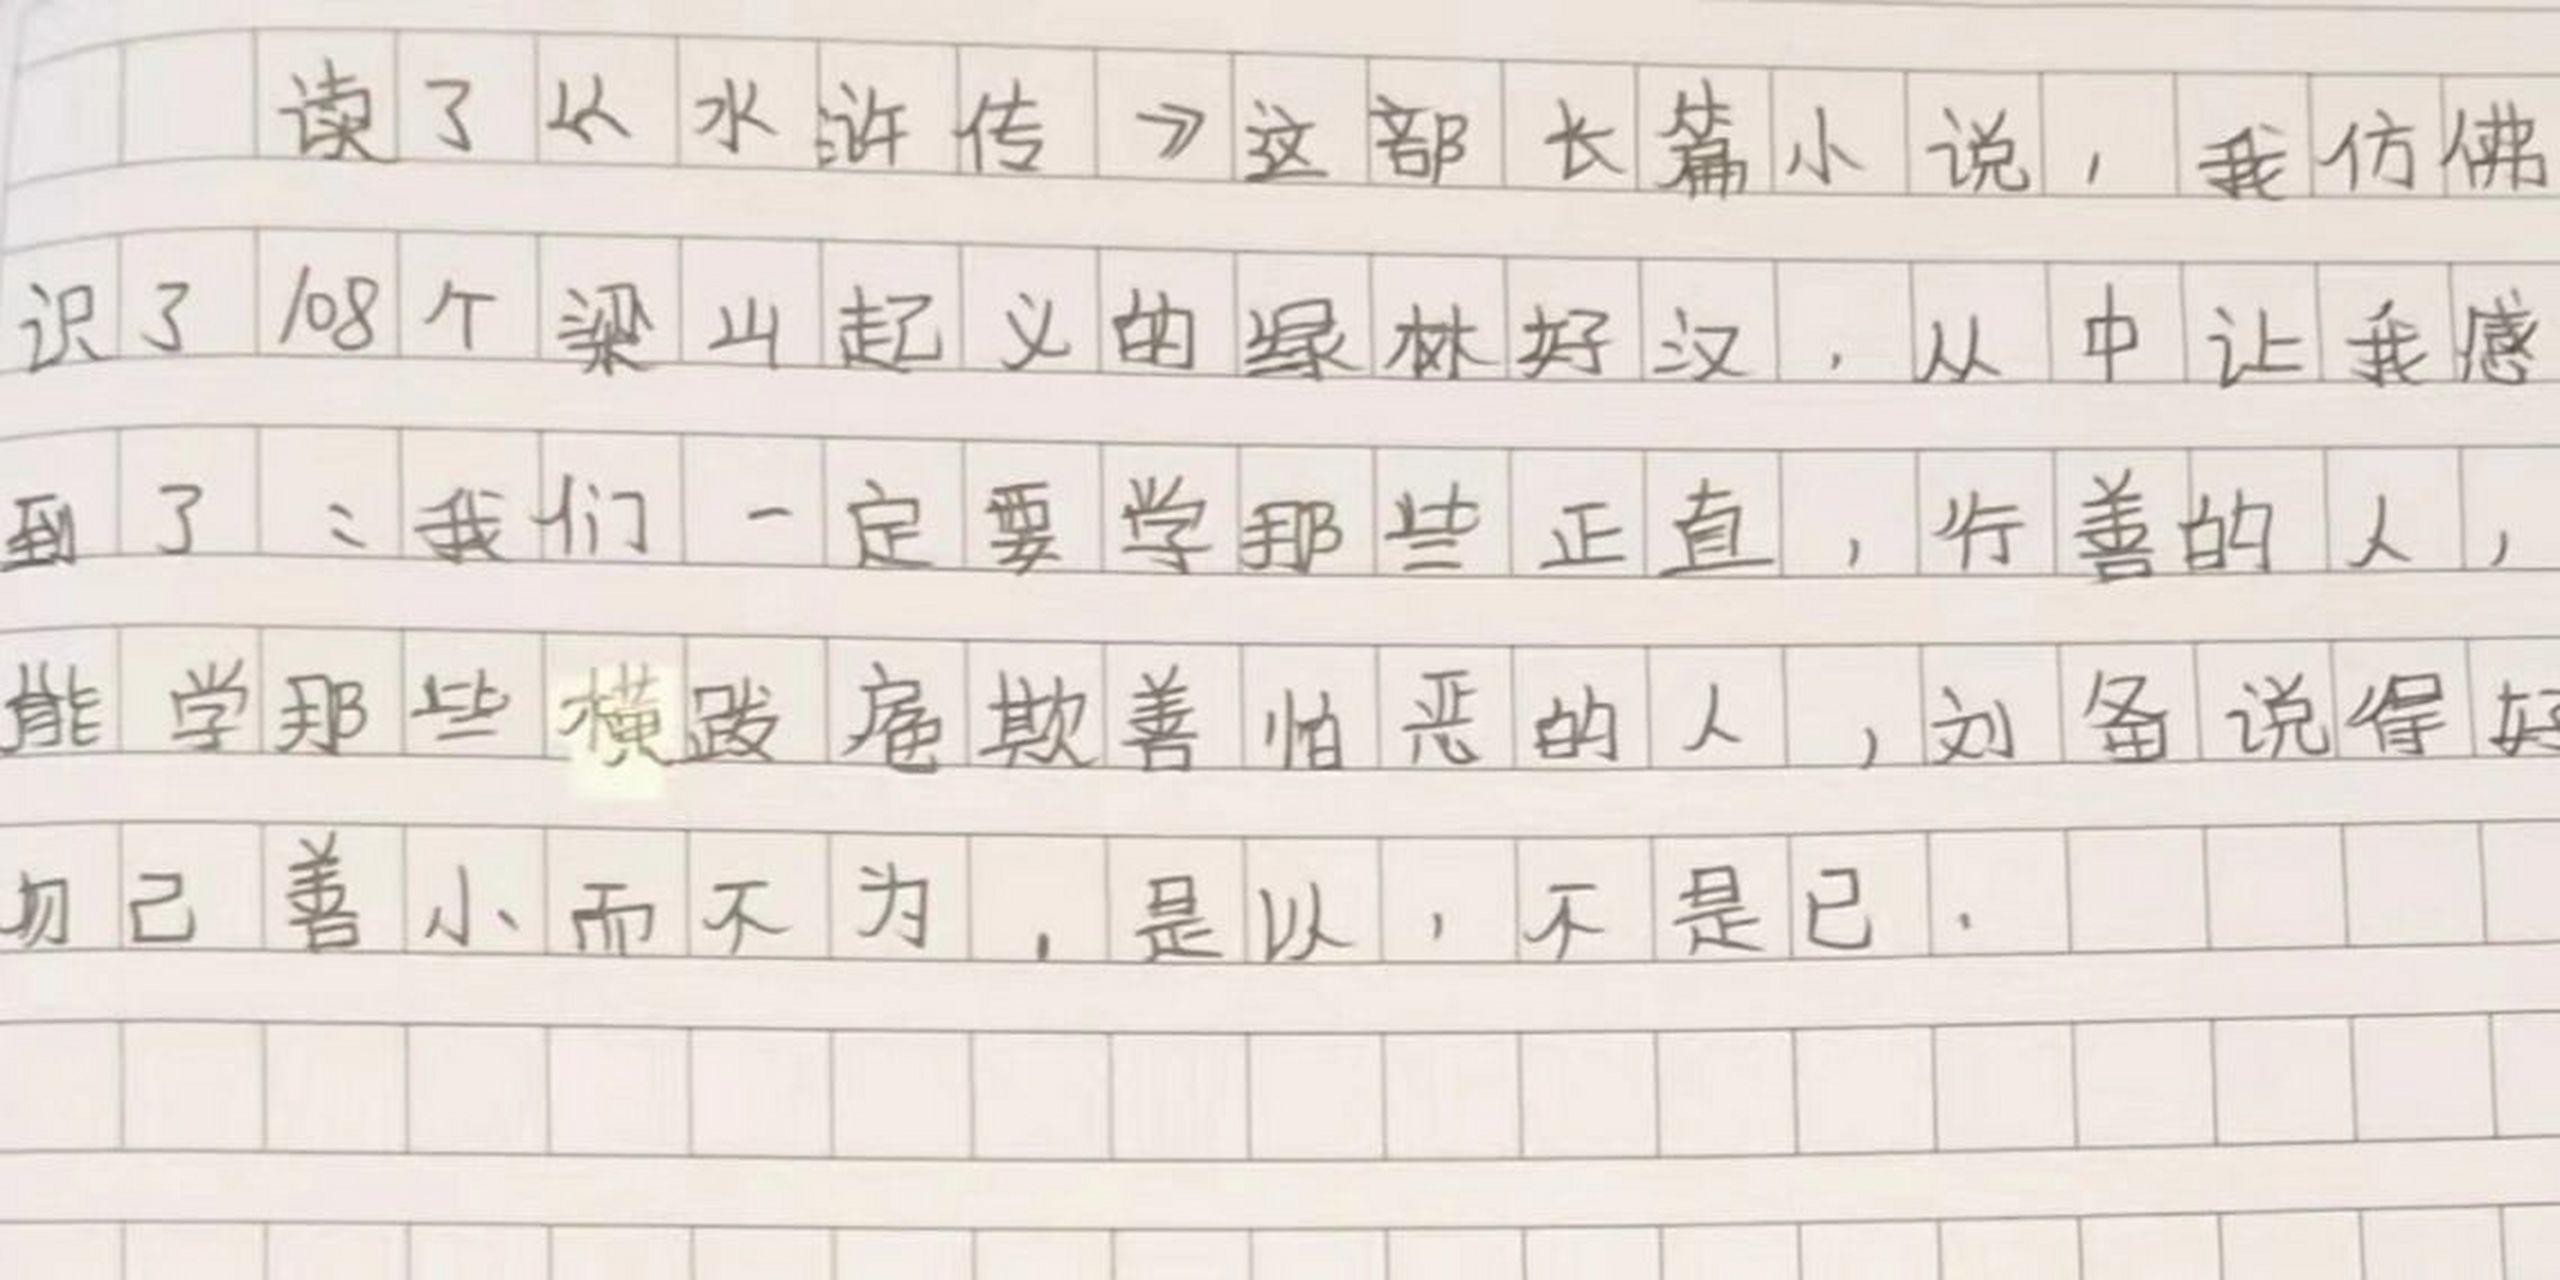 读了《水浒传》这部长篇小说，我仿佛
识了108个梁山起义的绿林好汉，从中让我感
到了：我们一定要学那些正直，行善的人，
能学那些横跋扈欺善怕恶的人，刘备说得好
勿己善小而不为，是以，不是已.